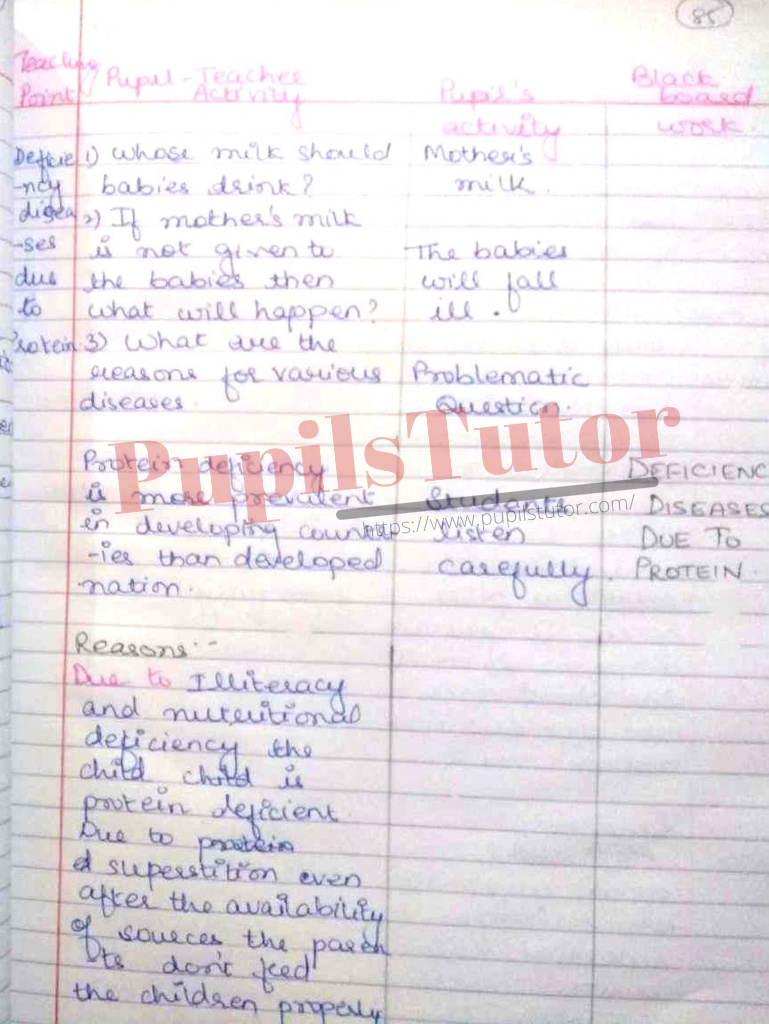 85
Teaching Point
Pupil-Teacher Activity
Pupil's activity
Black board work.
Deficie
-ncy
disea
-ses
due
to
Protein
1) Whose milk should
babies drink?
Mother's
milk.
2) If mother's milk
is not given to
the babies then
what will happen?
The babies
will fall
ill.
3) What are the
reasons for various
diseases.
Problematic
Question.
Protein deficiency
is more prevalent
in developing count
-ies than developed
nation.
Students
listen
carefully.
DEFICIENC
DISEASES
DUE TO
PROTEIN.
Reasons:-
Due to Illiteracy
and nutritional
deficiency the
child child is
protein deficient.
Due to protein
superstition even
after the availability
of sources the paren
ts don't feed
the children properly
PupilsTutor
https://www.pupilstutor.com/